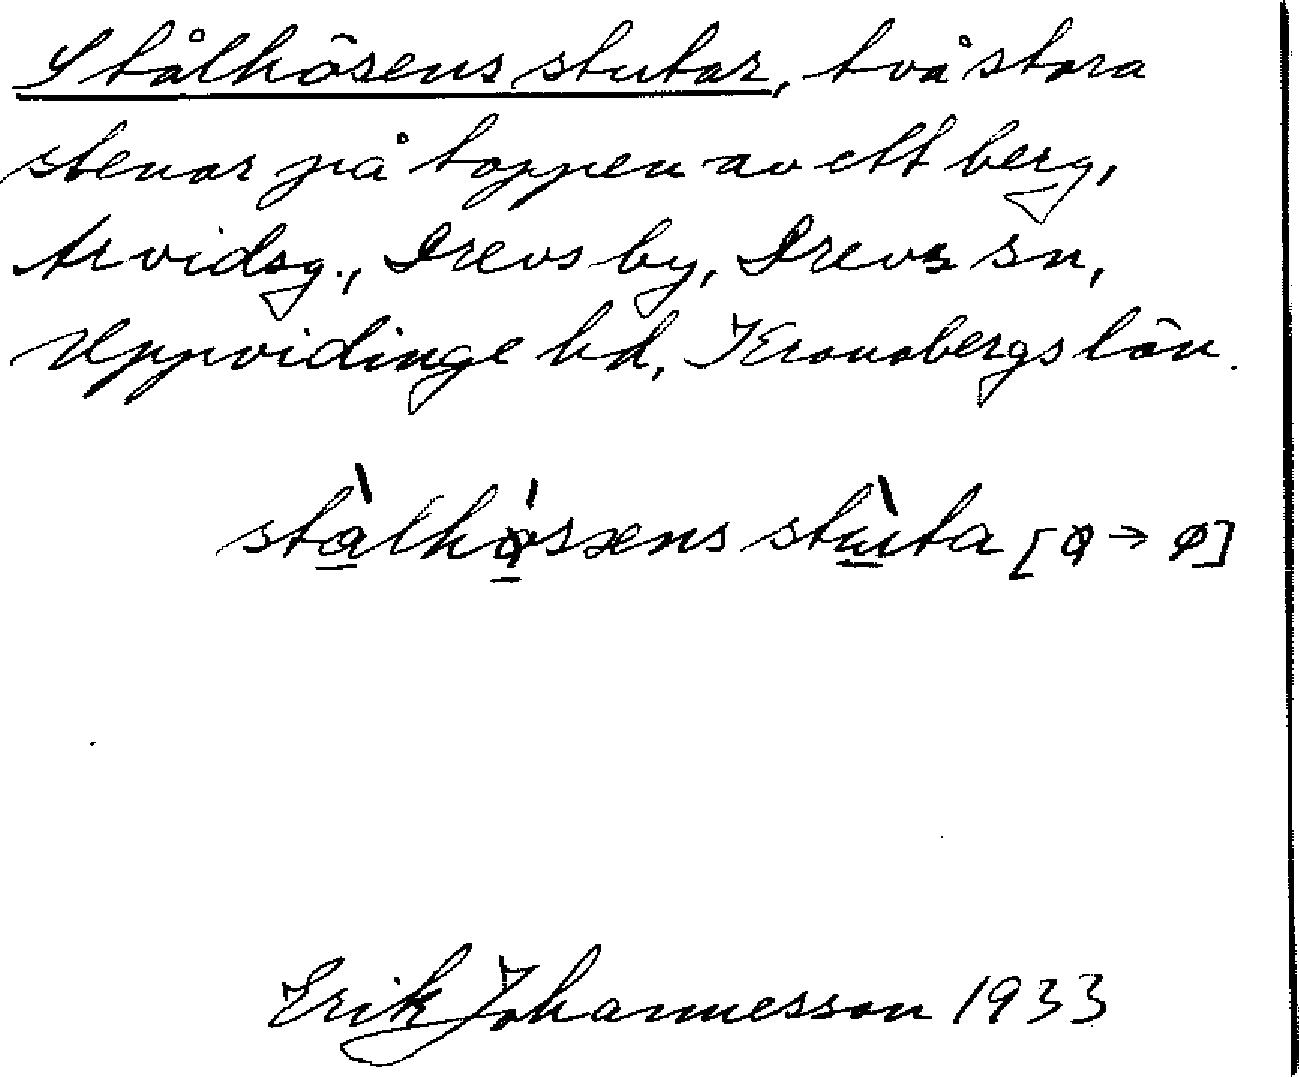 Stålhösens stutar, två stora
stenar på toppen av ett berg,
Arvidsg., Drevs by, Drevs sn,
Uppvidinge hd, Kronobergs län.
stàlhǫ́sæns stùta [ǫ → ø]
Erik Johannesson 1933